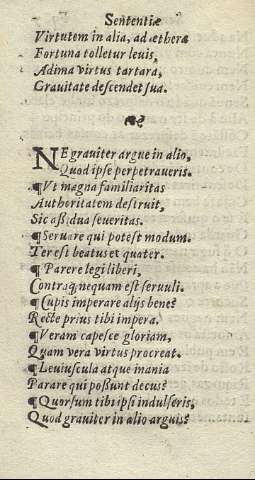 Sententiæ
Virtutem in alia, ad æthera
Fortuna tolletur leuis,
Adima virtus tartara,
Grauitate descendet sua.
NE grauiter argue in alio,
Quod ipse perpetraueris.
¶ Vt magna familiaritas
Authoritatem destruit,
Sic aßidua seueritas.
¶ Seruare qui potest modum.
Ter est beatus et quater.
¶ Parere legi liberi,
Contraq; nequam est seruuli.
¶ Cupis imperare alijs bene?
Recte prius tibi impera.
¶ Veram capesce gloriam,
Quam vera virtus procreat.
¶ Leuiuscula atque inania
Parare qui poßunt decus?
¶ Quorsum tibi ipsi indulseris,
Quod grauiter in alio arguis?